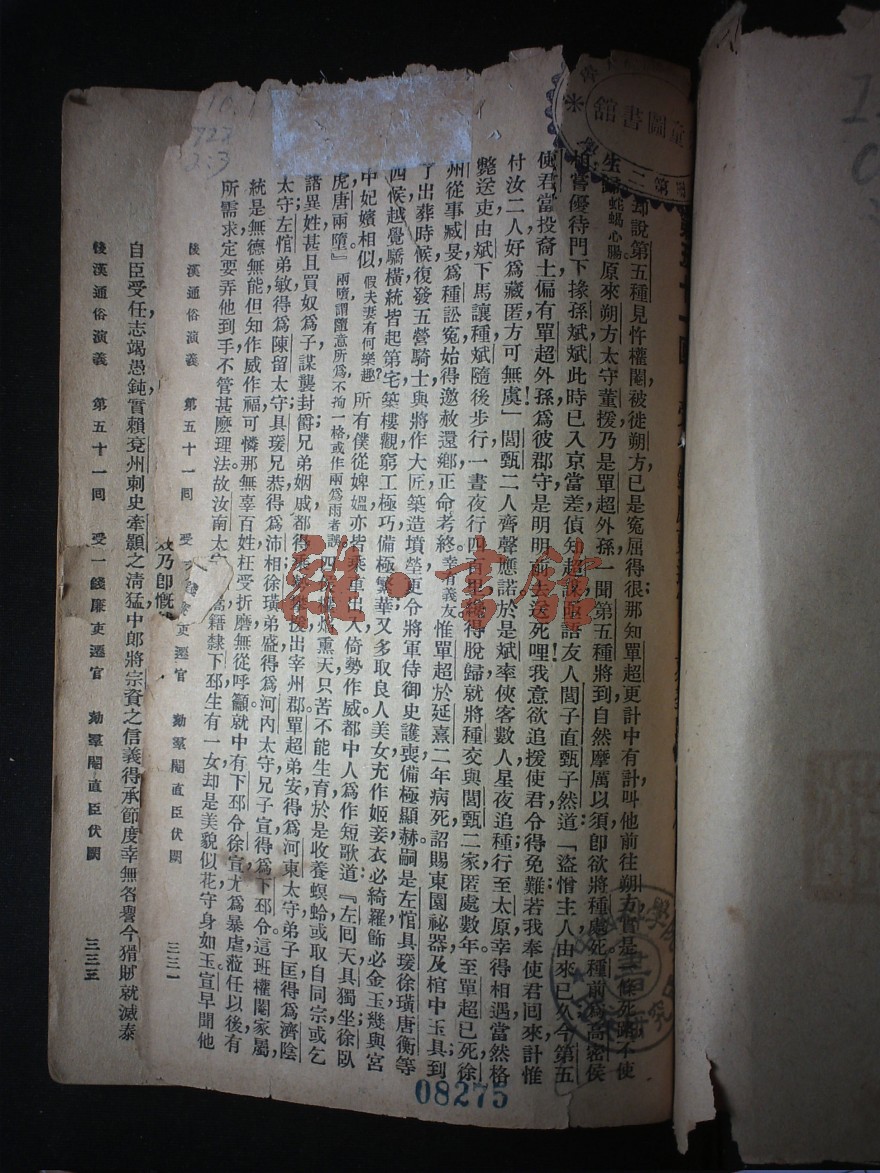 童圖書館
第二
却說第五種見忤權閹,被徙朔方,已是冤屈得很,那知單超更計中有計,叫他前往朔方,實是一條死路,不使
生歸。蛇蝎心腸。原來朔方太守董援,乃是單超外孫,一聞第五種將到,自然摩厲以須,卽欲將種處死。種前爲高密侯
相,嘗優待門下掾孫斌,斌此時已入京當差,偵知超謀,亟語友人閭子直甄子然道:「盜憎主人,由來已久,今第五
使君當投裔土,偏有單超外孫爲彼郡守,是明明前去送死哩!我意欲追援使君,令得免難,若我奉使君回來,計惟
付汝二人,好爲藏匿,方可無虞!」閭甄二人齊聲應諾,於是斌率俠客數人,星夜追種,行至太原,幸得相遇,當然格
斃送吏,由斌下馬讓種,斌隨後步行,一晝夜行四百里,纔得脫歸,就將種交與閭甄二家,匿處數年。至單超已死,徐
州從事臧旻爲種訟冤,始得邀赦還鄉,正命考終。幸有義友。惟單超於延熹二年病死,詔賜東園祕器及棺中玉具,到
了出葬時候,復發五營騎士,與將作大匠築造墳塋,更令將軍侍御史護喪,備極顯赫。嗣是左悺具瑗徐璜唐衡等
四候,越覺驕橫,統皆起第宅,築樓觀,窮工極巧,備極繁華,又多取良人美女,充作姬妾,衣必綺羅,飾必金玉,幾與宮
中妃嬪相似。假夫妻有何樂趣?所有僕從婢媼,亦皆乘車出入,倚勢作威,都中人爲作短歌道:『左回天,具獨坐,徐臥
虎,唐兩墮。』兩墮謂隨意所爲,不拘一格,或作兩爲雨者誤。四侯勢焰熏天,只苦不能生育,於是收養螟蛉,或取自同宗,或乞
諸異姓,甚且買奴爲子,謀襲封爵,兄弟姻戚,都得乘勢攀援,出宰州郡,單超弟安,得爲河東太守,弟子匡得爲濟陰
太守,左悺弟敏得爲陳留太守,具瑗兄恭得爲沛相,徐璜弟盛得爲河內太守,兄子宣得爲下邳令,這班權閹家屬,
統是無德無能,但知作威作福,可憐那無辜百姓,枉受折磨,無從呼籲。就中有下邳令徐宣,尤爲暴虐,蒞任以後,有
所需求,定要弄他到手,不管甚麽理法。故汝南太守李暠籍隸下邳,生有一女,却是美貌似花,守身如玉,宣早聞他
後漢通俗演義 第五十一回 受一錢廉吏遷官 劾羣閹直臣伏闕 三三一
乃卽慨
自臣受任,志竭愚鈍,實賴兗州刺史牽顥之清猛,中郎將宗資之信義,得承節度,幸無咎譽,今猾賊就滅,泰
後漢通俗演義 第五十一回 受一錢廉吏遷官 劾羣閹直臣伏闕 三三三
08275
雅·書館